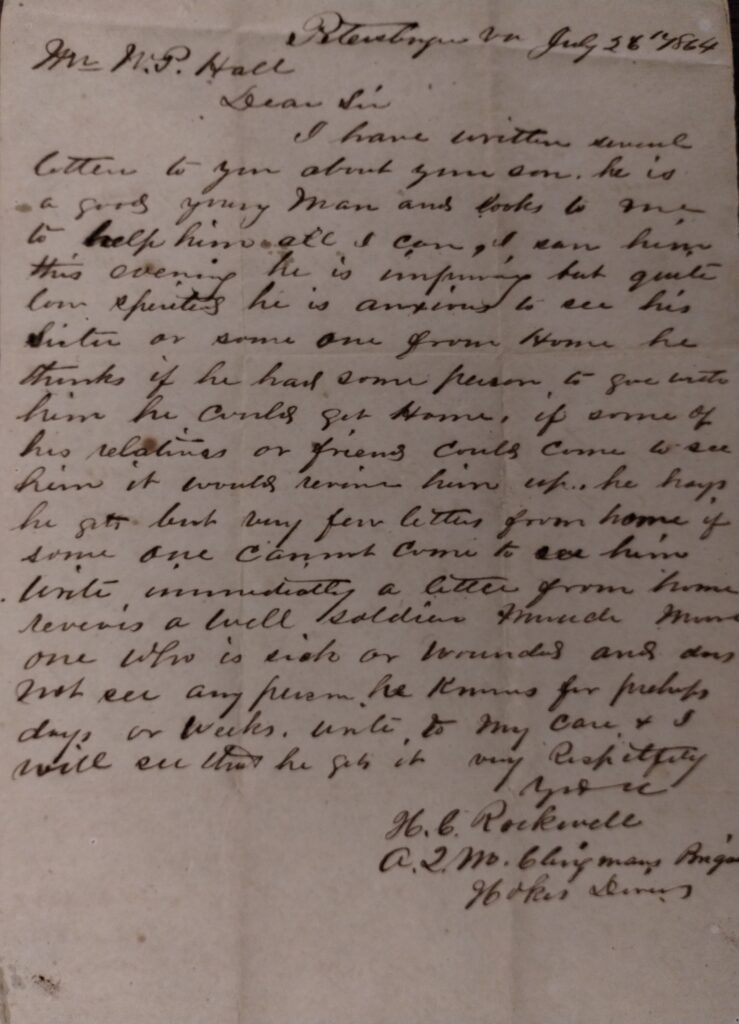 Petersburg Va July 28th 1864
Mr N.P. Hall
Dear Sir
I have written several
letters to you about your son. he is
a good young Man and looks to me
to help him all I can, I saw him
this evening he is improving but quite
low spirited he is anxious to see his
Sister or some one from Home he
thinks if he had some person to go with
him he could get Home, if some of
his relatives or friends could come to see
him it would revive him up. he says
he gets but very few letters from home if
some one cannot come to see him
write immediatly a letter from home
revives a well soldier & much More
one who is sick or wounded and does
not see any person he knows for prehaps
days or weeks. write to My care & I
will see that he gets it very Respectfuly
Yrs &c
H. C. Rockwell
A.Q.M. Clingmans Briga
Hokes Divis